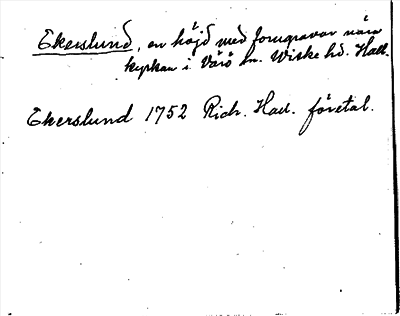 Ekerslund, en höjd med forngravar nära
kyrkan i Värö sn. Wiske hd. Hall.
Ekerslund 1752 Rich. Hall. företal.